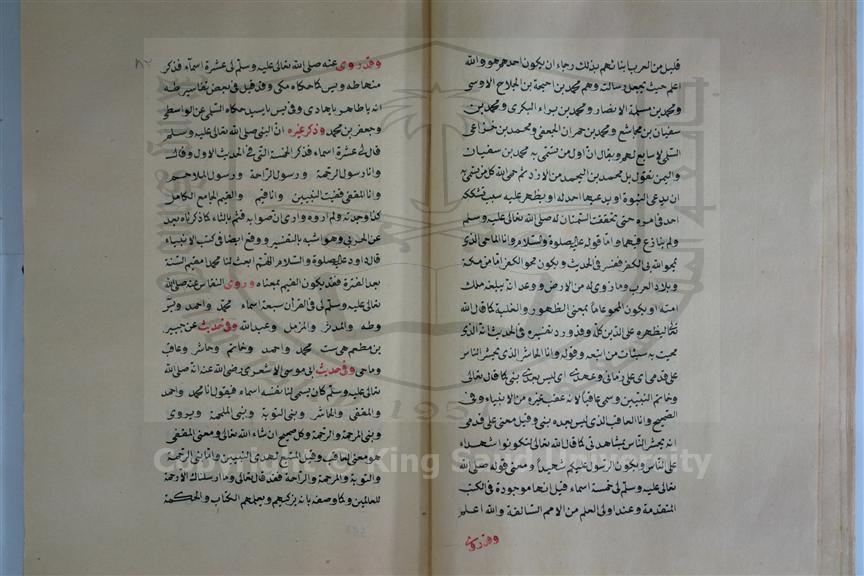 قليل من العرب ابنائهم بذلك رجاء ان يكون احدهم هو والله
اعلم حيث يجعل رسالته وهم محمد بن احيحة بن الجلاح الاوسى
ومحمد بن مسلمة الانصار ومحمد بن براء البكرى ومحمد بن
سفيان بن مجاشع ومحمد بن حمران الجعفى ومحمد بن خزاعى
السلمى لا سابع لهم ويقال ان اول من تسمى به محمد بن سفيان
واليمن تقول بل محمد بن اليحمد من الازد ثم حمى الله كل من تسمى به
ان يدعى النبوة او يدعيها احد له او يظهر عليه سبب يشكك
احد فى امره حتى تحققت السمتان له صلى الله تعالى عليه وسلم
ولم ينازع فيهما واما قوله عليه الصلوة والسلام وانا الماحى الذى
يمحو الله بى الكفر ففسر فى الحديث ويكون محو الكفر اما من مكة
وبلاد العرب وما زوى له من الارض ووعد انه يبلغه ملك
امته او يكون المحو عاما بمعنى الظهور والغلبة كما قال الله
تعالى ليظهره على الدين كله وقد ورد تفسيره فى الحديث انه الذى
محيت به سيئات من اتبعه وقوله وانا الحاشر الذى يحشر الناس
على قدمى اى على زمانى وعهدى اى ليس بعدى نبى كما قال تعالى
وخاتم النبيين وسمى عاقبا لانه عقب غيره من الانبياء وفى
الصحيح وانا العاقب الذى ليس بعده نبى وقيل معنى على قدمى
انه يحشر الناس بمشاهدتى كما قال الله تعالى لتكونوا شهداء
على الناس ويكون الرسول عليكم شهيدا ومعنى قوله صلى الله
تعالى عليه وسلم لى خمسة اسماء قيل انها موجودة فى الكتب
المتقدمة وعند اولى العلم من الامم السالفة والله اعلم
وقد روى
٨٢
وقد روى عنه صلى الله تعالى عليه وسلم لى عشرة اسماء فذكر
منها طه ويس كما حكاه مكى وقد قيل فى بعض تفاسير طه
انه يا طاهر يا هادى وفى يس يا سيد حكاه السلمى عن الواسطى
وجعفر بن محمد وذكر غيره ان النبى صلى الله تعالى عليه وسلم
قال لى عشرة اسماء فذكر الخمسة التى فى الحديث الاول وقال
وانا رسول الرحمة ورسول الراحة ورسول الملاحم
وانا المقفى قفيت النبيين وانا قيم والقيم الجامع الكامل
كذا وجدته ولم اروه وارى ان صوابه قثم بالثاء كما ذكرناه بعد
عن الحربى وهو اشبه بالتفسير ووقع ايضا فى كتب الانبياء
قال داود عليه الصلوة والسلام اللهم ابعث لنا محمدا مقيم السنة
بعد الفترة فقد يكون القيم بمعناه وروى النقاش عنه صلى الله
تعالى عليه وسلم لى فى القرآن سبعة اسماء محمد واحمد ويس
وطه والمدثر والمزمل وعبد الله وفى حديث عن جبير
بن مطعم هى ست محمد واحمد وخاتم وحاشر وعاقب
وماحى وفى حديث ابى موسى الاشعرى رضى الله عنه انه صلى الله
تعالى عليه وسلم كان يسمى لنا نفسه اسماء فيقول انا محمد واحمد
والمقفى والحاشر ونبى التوبة ونبى الملحمة ويروى
ونبى المرحمة والرحمة وكل صحيح ان شاء الله تعالى ومعنى المقفى
هو معنى العاقب وقيل المتبع لهدى النبيين واما نبى الرحمة
والتوبة والمرحمة والراحة فقد قال تعالى وما ارسلناك الا رحمة
للعالمين وكما وصفه بانه يزكيهم ويعلمهم الكتاب والحكمة
Copyright © King Saud University
1957